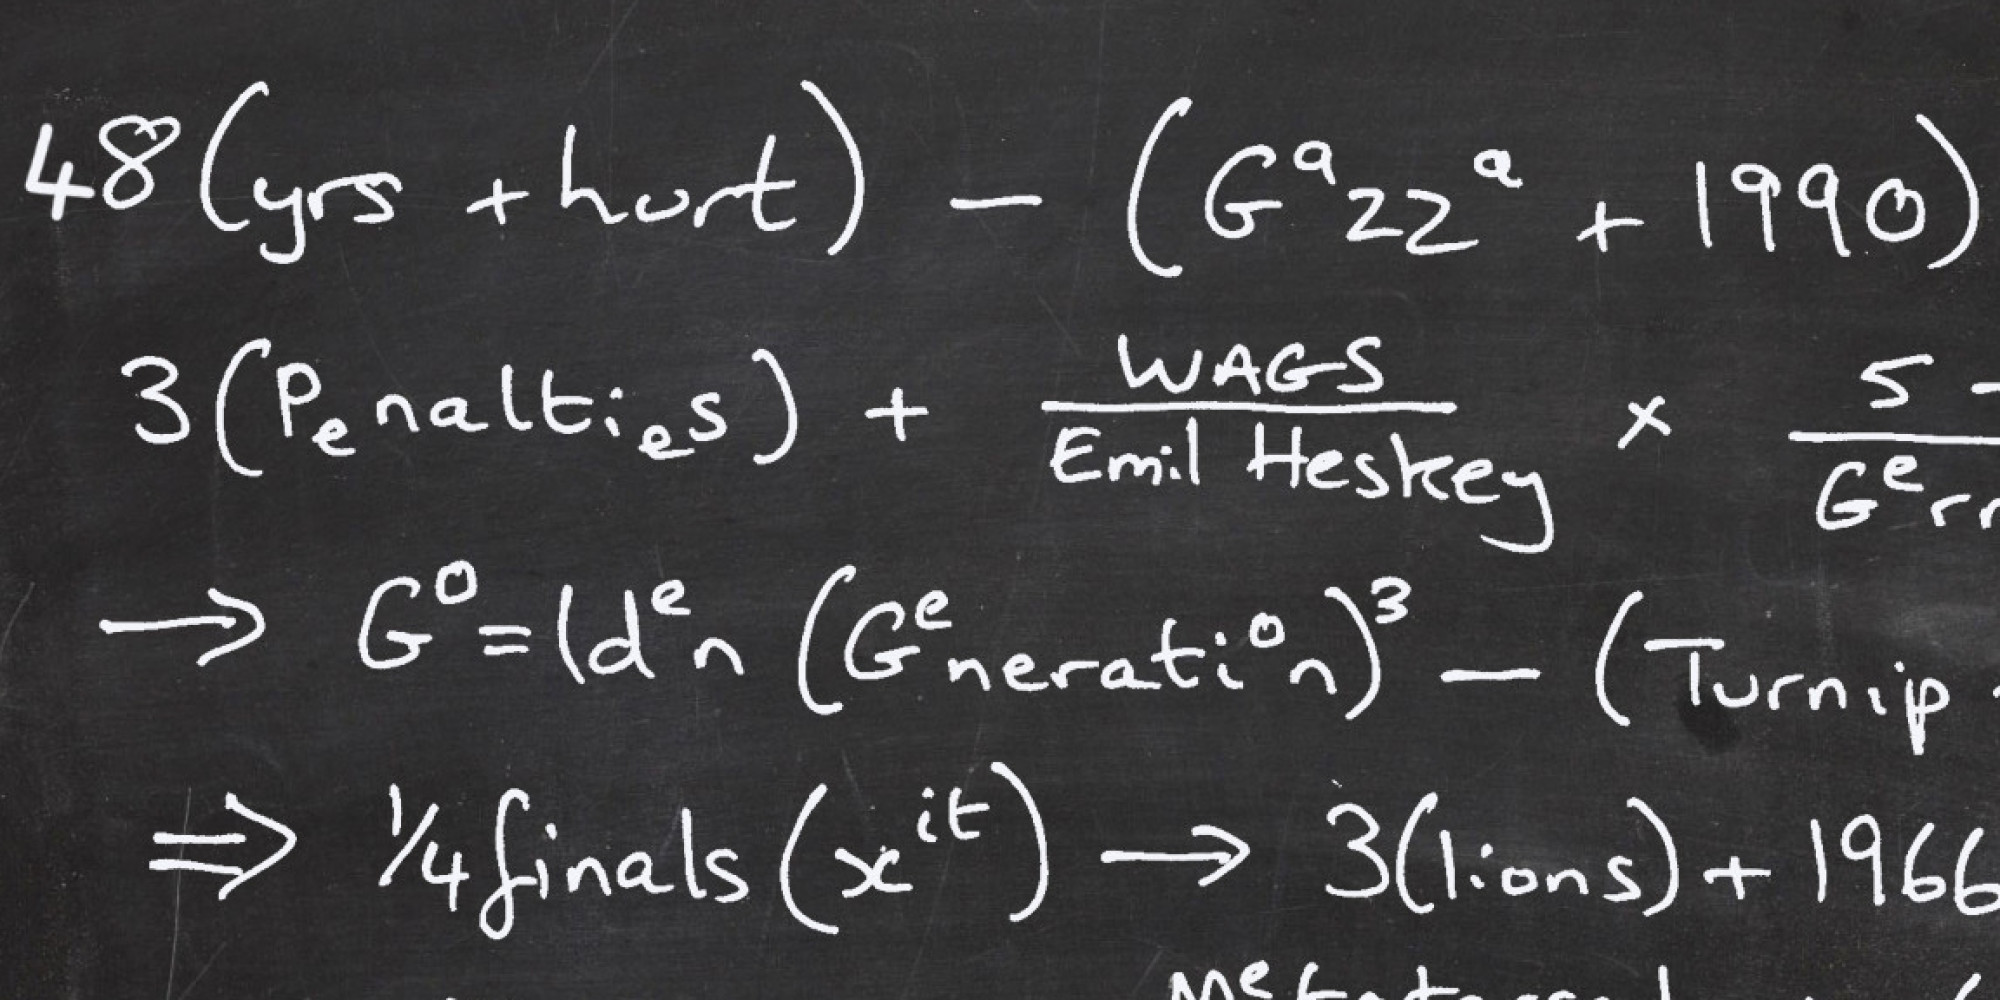 48(yrs + hurt) – (Gᵃ22ᵃ + 1990)
3(Penalties) + WAGS/Emil Heskey × 5 –/Gᵉrr
→ G⁰=ldᵉn (Gᵉneratiᵒn)³ – (Turnip
⇒ ¼finals(xⁱᵗ) → 3(lions) + 1966